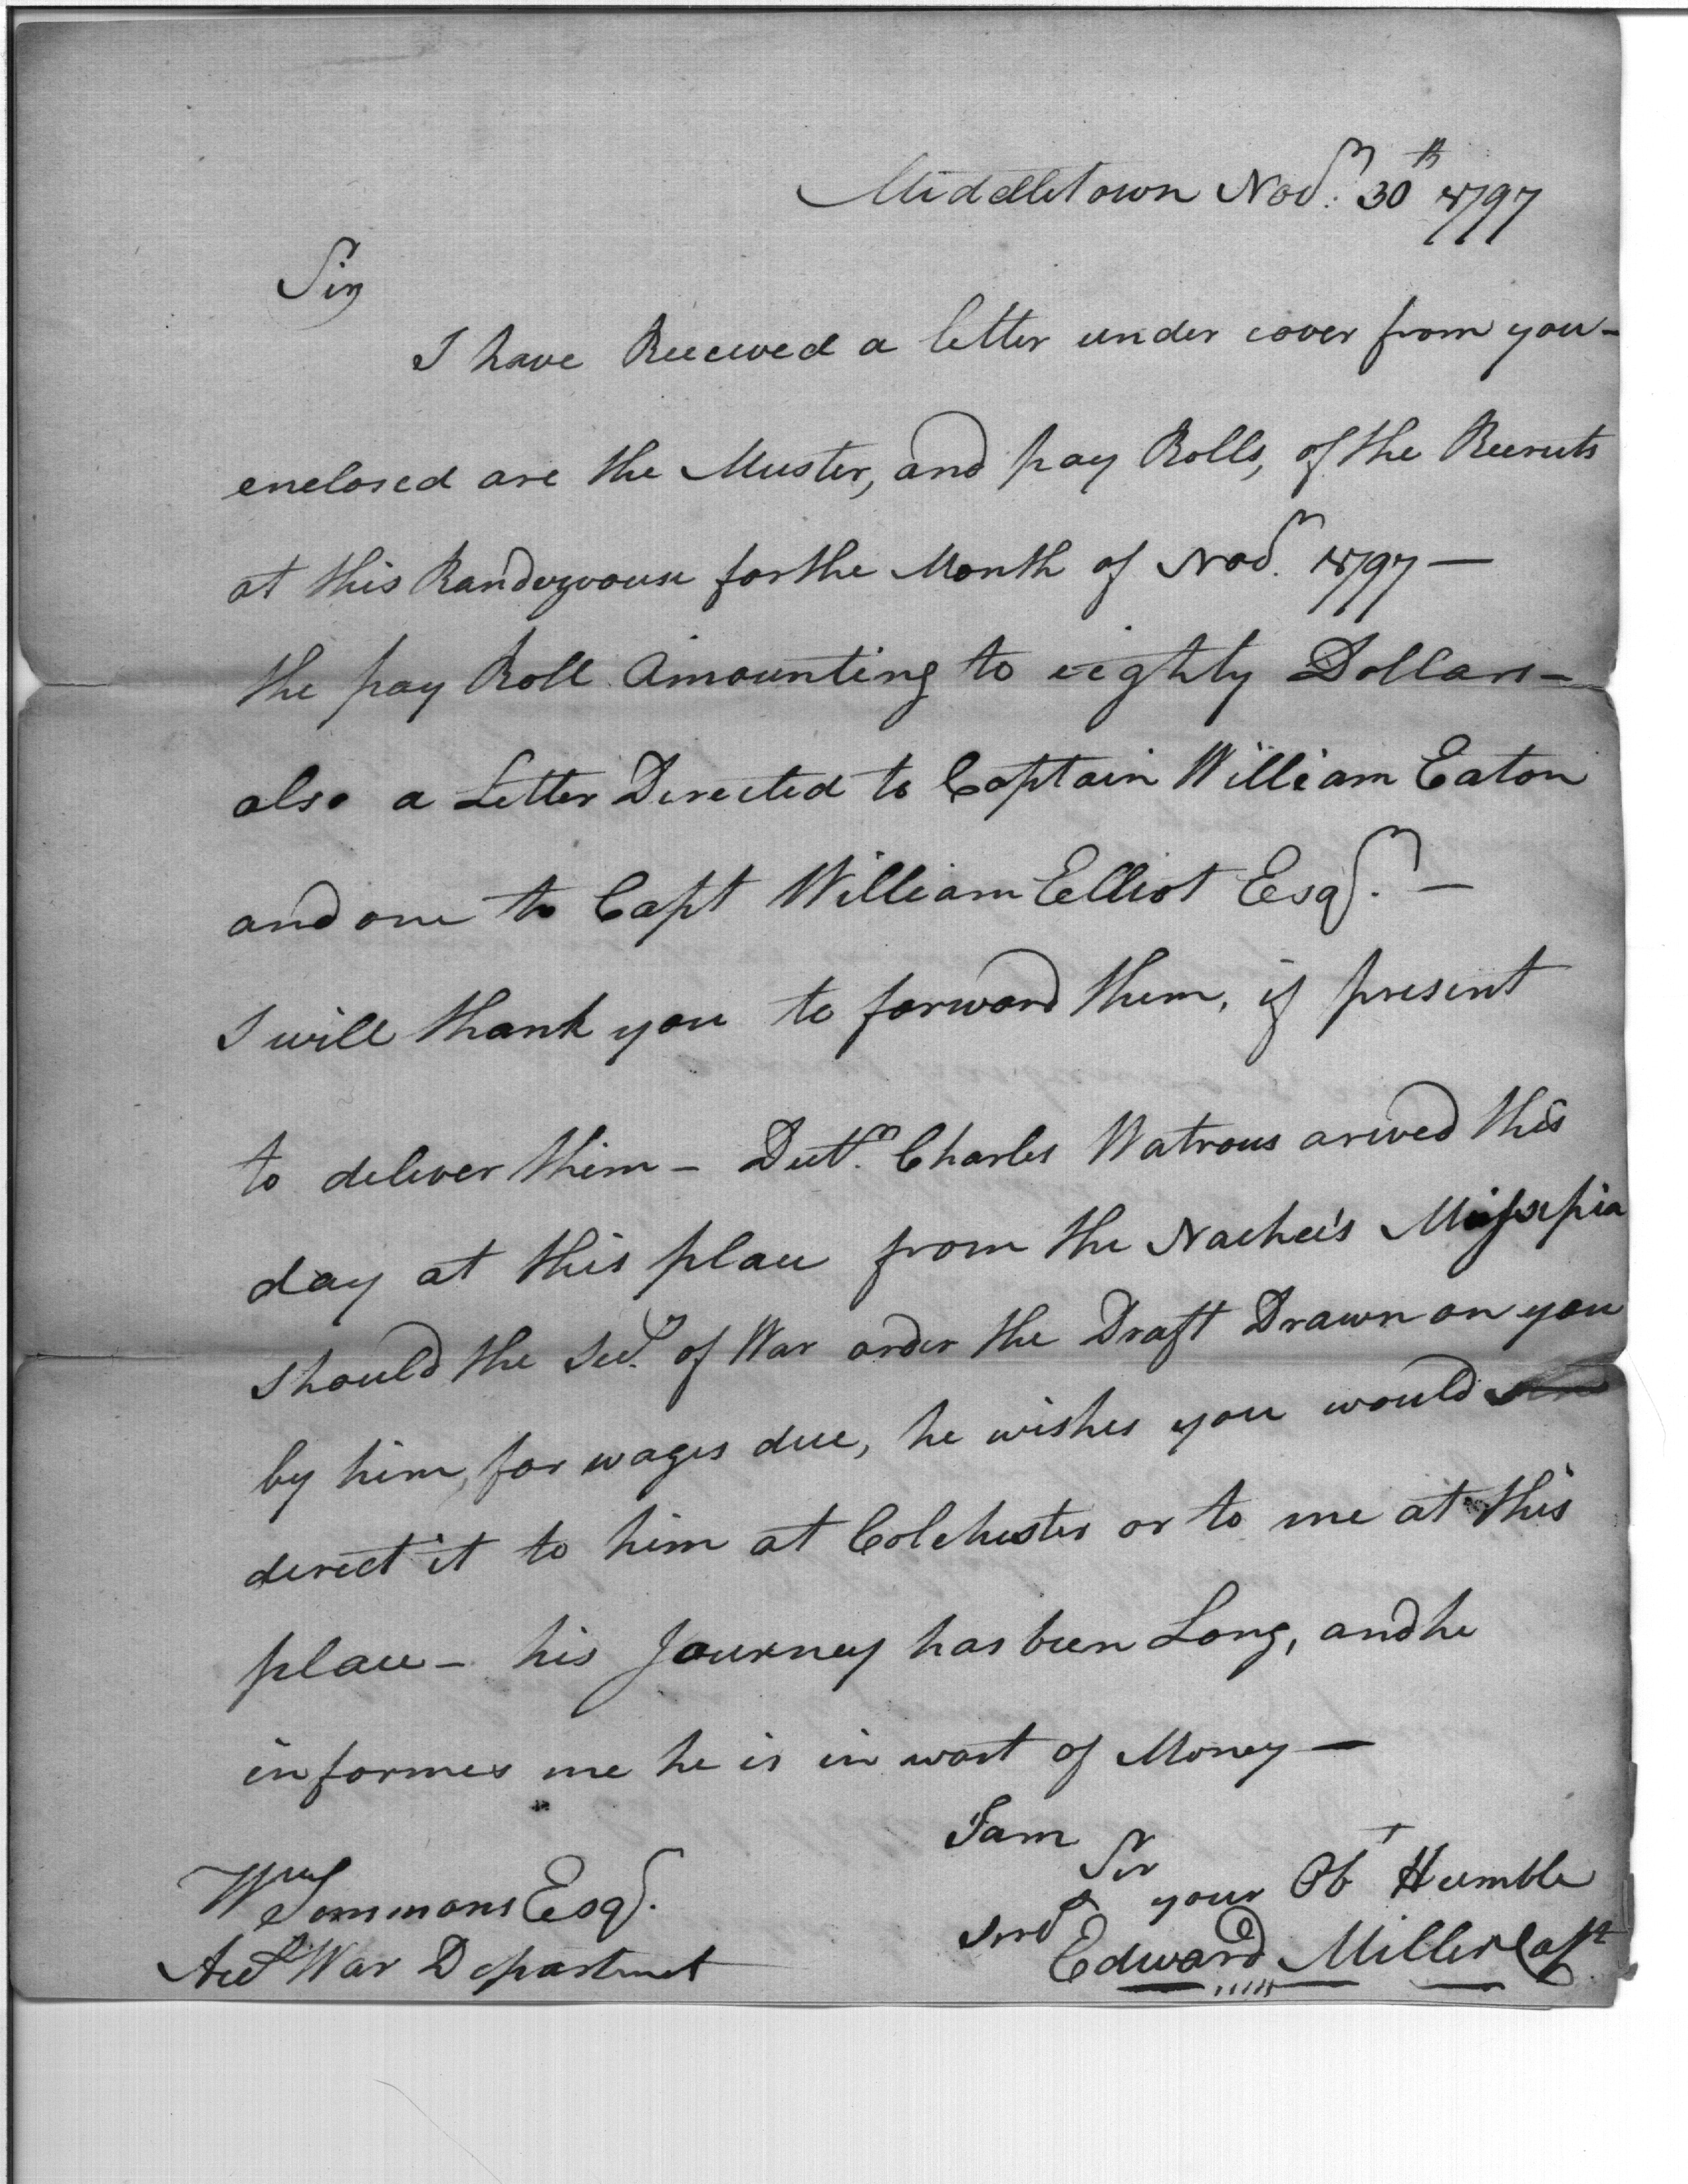 Middletown Novr: 30th 1797
Sir
I have Receeved a letter under cover from you -
enclosed are the Muster, and pay Rolls, of the Recruts
at this Randezvouse for the Month of Novr. 1797 —
the pay Roll Amounting to eighty Dollars -
also a Letter Derected to Captain William Eaton
and one to Capt William Elliot Esqr. —
I will thank you to forward them, if present
to deliver them - Doctr. Charles Watrous arived this
day at this place from the Nachee's Missipia
should the Secy. of War order the Draft Drawn on you
by him, for wages due, he wishes you would
derect it to him at Colchester or to me at this
place - his Journey has been Long, and he
informes me he is in want of Money —
I am
Sir
your Obt Humble
Servt
Edward Miller Capt
Wm Simmons Esqr.
Acct War Department